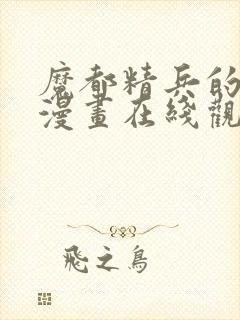 魔都精兵的
漫畫在綫觀
飛之鳥